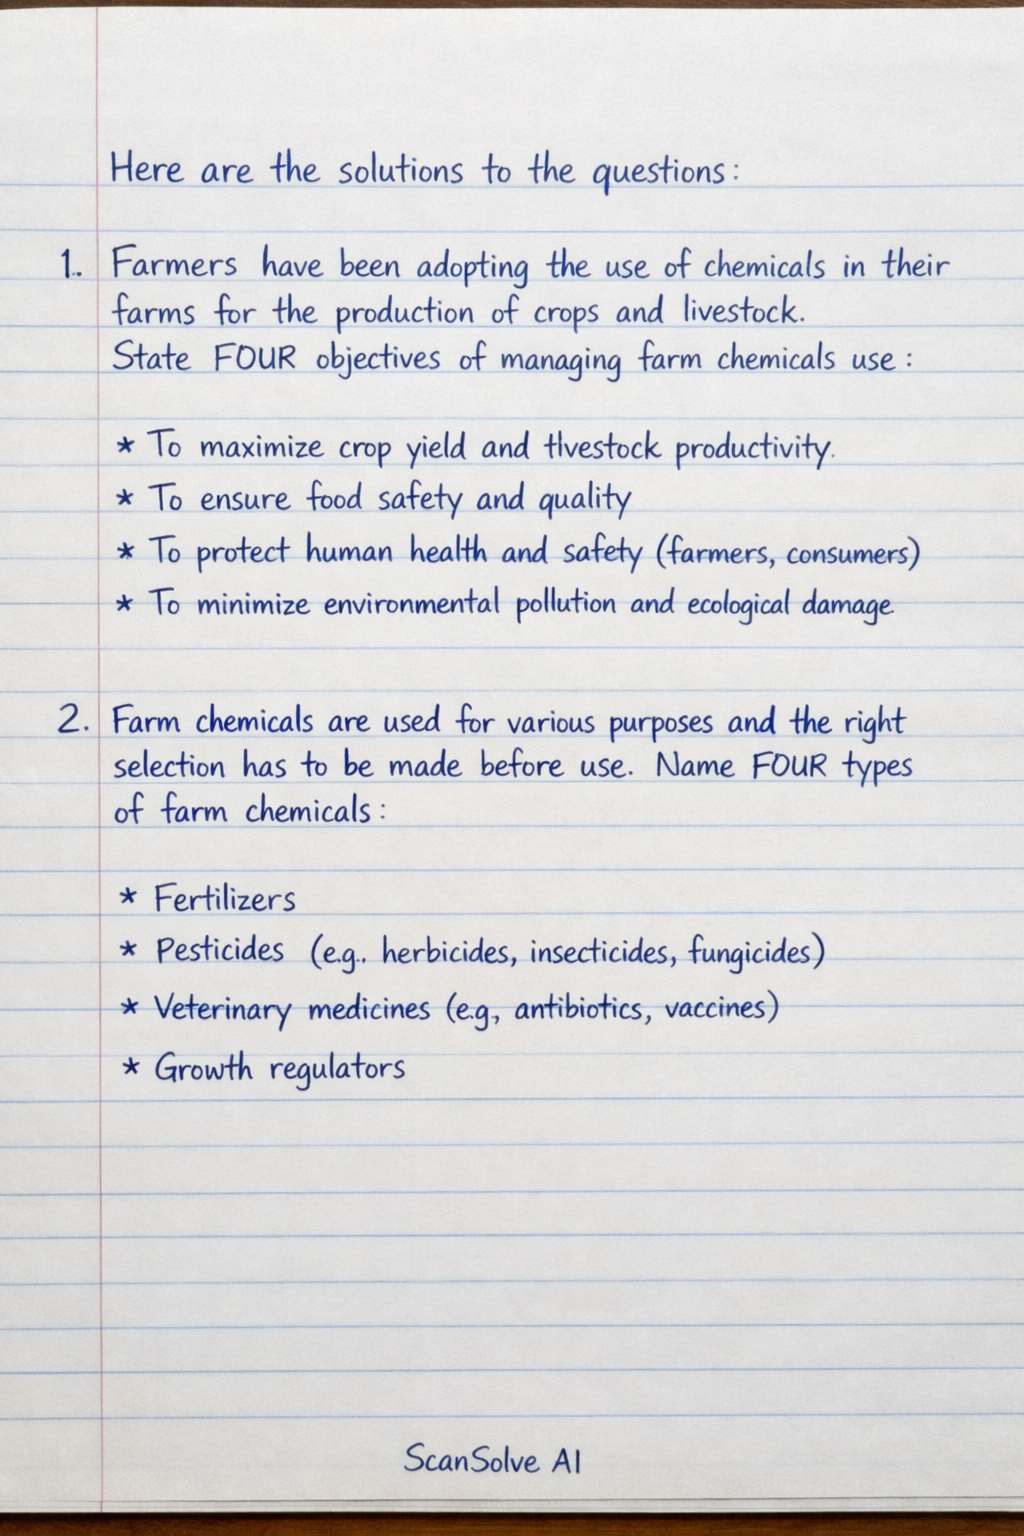 Here are the solutions to the questions:
1.. Farmers have been adopting the use of chemicals in their
farms for the production of crops and livestock.
State FOUR objectives of managing farm chemicals use:
* To maximize crop yield and tlvestock productivity.
* To ensure food safety and quality
* To protect human health and safety (farmers, consumers)
* To minimize environmental pollution and ecological damage.
2. Farm chemicals are used for various purposes and the right
selection has to be made before use. Name FOUR types
of farm chemicals:
* Fertilizers
* Pesticides (e.g.. herbicides, insecticides, fungicides)
* Veterinary medicines (e.g, antibiotics, vaccines)
* Growth regulators
ScanSolve AI